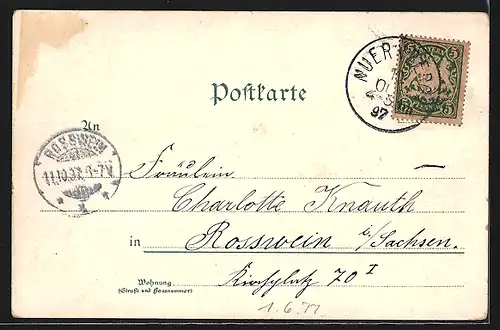 Postkarte
NUER
OC
4-5
97
BAYERN
5 5
PFENNIG
An
ROSSWEIN
11.10.97. 6-7V.
Fräulein
Charlotte Knauth
in Rosswein i/Sachsen.
Wohnung
(Straße und Hausnummer)
Kirchplatz 70 I
1.6.77